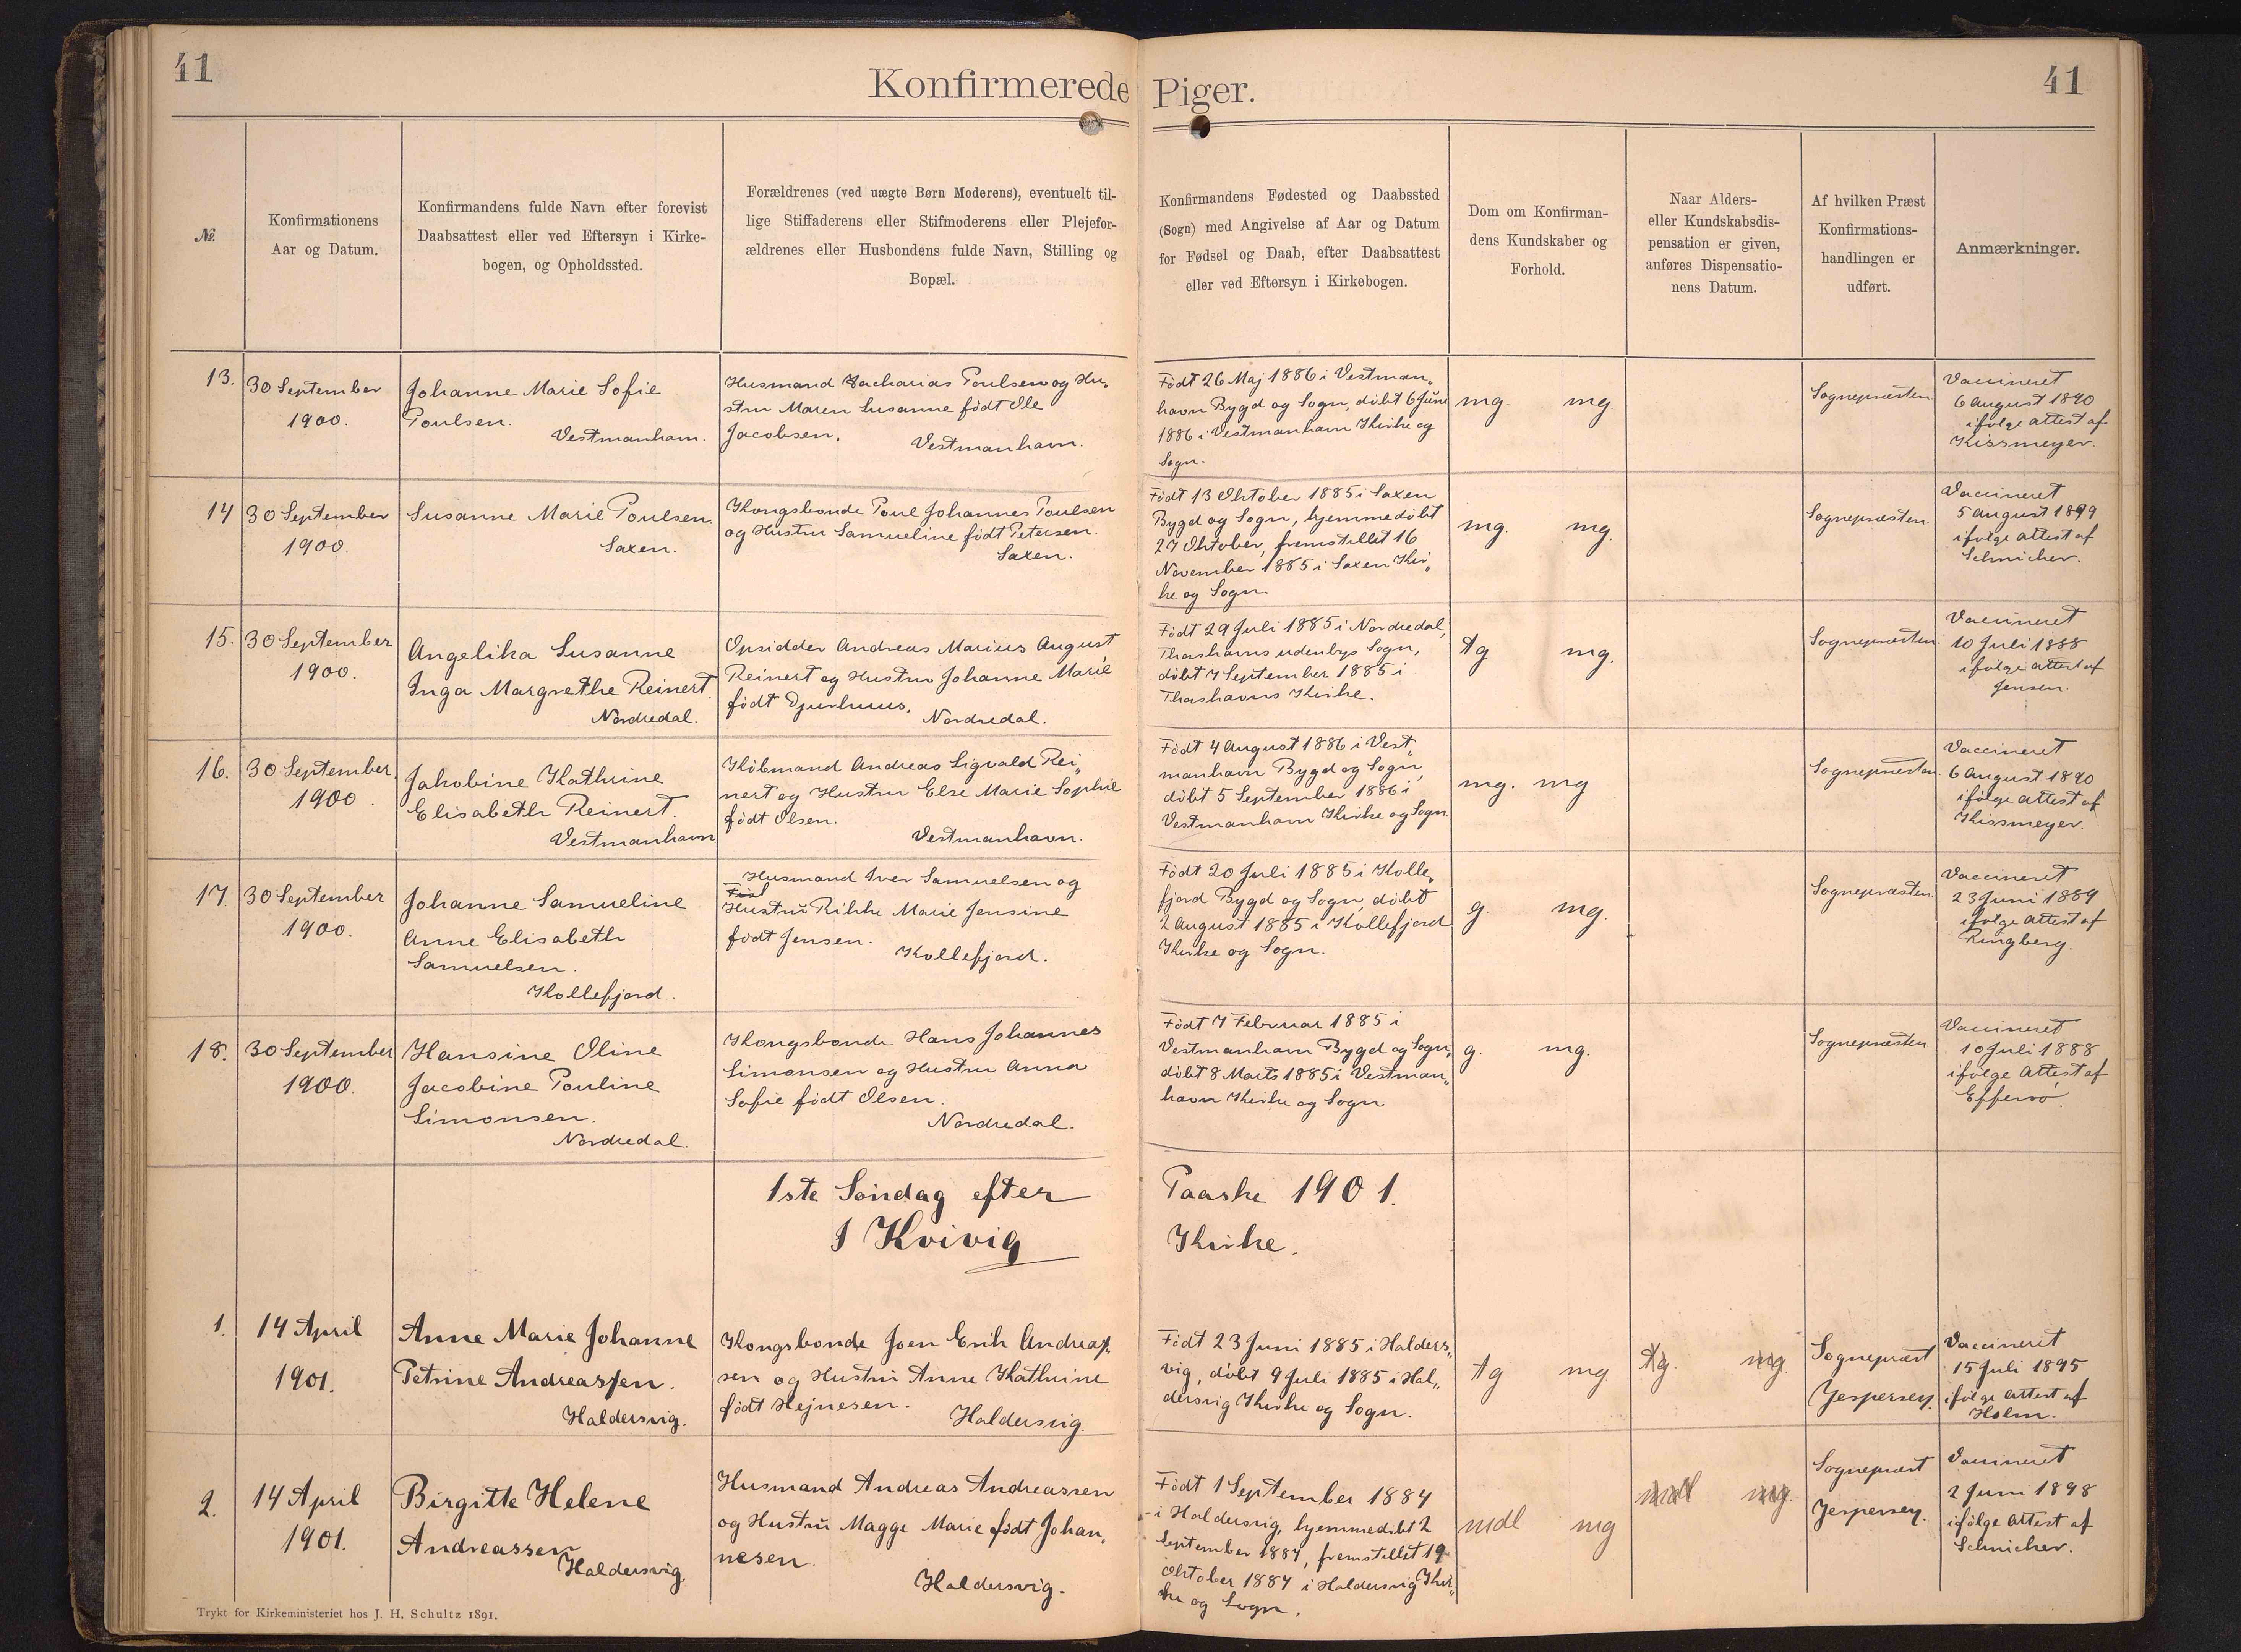 41
Konfirmerede Piger.
41
№.
Konfirmationens
Aar og Datum.
Konfirmandens fulde Navn efter forevist
Daabsattest eller ved Eftersyn i Kirke-
bogen, og Opholdssted.
Forældrenes (ved uægte Børn Moderens), eventuelt til-
lige Stiffaderens eller Stifmoderens eller Plejefor-
ældrenes eller Husbondens fulde Navn, Stilling og
Bopæl.
Konfirmandens Fødested og Daabssted
(Sogn) med Angivelse af Aar og Datum
for Fødsel og Daab, efter Daabsattest
eller ved Eftersyn i Kirkebogen.
Dom om Konfirman-
dens Kundskaber og
Forhold.
Naar Alders-
eller Kundskabsdis-
pensation er given,
anføres Dispensatio-
nens Datum.
Af hvilken Præst
Konfirmations-
handlingen er
udført.
Anmærkninger.
13.
30 September
1900.
Johanne Marie Sofie
Poulsen.
Vestmanhavn.
Husmand Zacharias Poulsen og Hu„
stru Maren Susanne født Ole
Jacobsen.
Vestmanhavn.
Født 26 Maj 1886 i Vestman„
havn Bygd og Sogn, døbt 6 Juni
1886 i Vestmanhavn Kirke og
Sogn.
mg. mg.
Sognepræsten
Vaccineret
6 August 1890
ifølge Attest af
Kissmeyer.
14
30 September
1900.
Susanne Marie Poulsen.
Saxen.
Kongsbonde Poul Johannes Poulsen
og Hustru Samueline født Petersen.
Saxen.
Født 13 Oktober 1885 i Saxen
Bygd og Sogn, hjemmedøbt
27 Oktober, fremstillet 16
November 1885 i Saxen Kir„
ke og Sogn.
mg. mg.
Sognepræsten.
Vaccineret
5 August 1899
ifølge Attest af
Schnicker.
15.
30 September
1900.
Angelika Susanne
Inga Margrethe Reinert.
Nordredal.
Opsidder Andreas Marius August
Reinert og Hustru Johanne Marie
født Djurhuus.
Nordredal.
Født 29 Juli 1885 i Nordredal,
Thorshavns udenbys Sogn,
døbt 7 September 1885 i
Thorshavns Kirke.
tg mg.
Sognepræsten.
Vaccineret
10 Juli 1888
ifølge Attest af
Jensen.
16.
30 September.
1900.
Jakobine Kathrine
Elisabeth Reinert.
Vestmanhavn
Købmand Andreas Sigvald Rei„
nert og Hustru Else Marie Sophie
født Olsen.
Vestmanhavn.
Født 4 August 1886 i Vest„
manhavn Bygd og Sogn,
døbt 5 September 1886 i
Vestmanhavn Kirke og Sogn.
mg. mg
Sognepræsten.
Vaccineret
6 August 1890
ifølge Attest af
Kissmeyer.
17.
30 September
1900.
Johanne Samueline
Anne Elisabeth
Samuelsen.
Kollefjord.
Husmand Iver Samuelsen og
Hustru Rikke Marie Jensine
født Jensen.
Kollefjord.
Født 20 Juli 1885 i Kolle„
fjord Bygd og Sogn, døbt
2 August 1885 i Kollefjord
Kirke og Sogn.
g. mg.
Sognepræsten.
Vaccineret
23 Juni 1889
ifølge Attest af
Ringberg.
18.
30 September
1900.
Hansine Oline
Jacobine Pouline
Simonsen.
Nordredal.
Kongsbonde Hans Johannes
Simonsen og Hustru Anna
Sofie født Olsen.
Nordredal.
Født 7 Februar 1885 i
Vestmanhavn Bygd og Sogn,
døbt 8 Marts 1885 i Vestman„
havn Kirke og Sogn
g. mg.
Sognepræsten
Vaccineret
10 Juli 1888
ifølge Attest af
Effersø.
1ste Søndag efter Paaske 1901.
I Kvivig Kirke.
1.
14 April
1901.
Anne Marie Johanne
Petrine Andreassen.
Haldersvig.
Kongsbonde Joen Erik Andreas„
sen og Hustru Anne Kathrine
født Hejnesen.
Haldersvig.
Født 23 Juni 1885 i Halders„
vig, døbt 9 Juli 1885 i Hal„
dersvig Kirke og Sogn.
tg mg.
tg. mg.
Sognepræst
Jespersen.
Vaccineret
15 Juli 1895
ifølge Attest af
Holm.
2.
14 April
1901.
Birgitte Helene
Andreassen
Haldersvig.
Husmand Andreas Andreassen
og Hustru Magge Marie født Johan„
nesen.
Haldersvig.
Født 1 September 1884
i Haldersvig, hjemmedøbt 2
September 1884, fremstillet 19
Oktober 1884 i Haldersvig Kir„
ke og Sogn.
mdl mg
mdl mg.
Sognepræst
Jespersen.
Vaccineret
2 Juni 1898
ifølge Attest af
Schnicker.
Trykt for Kirkeministeriet hos J. H. Schultz 1891.